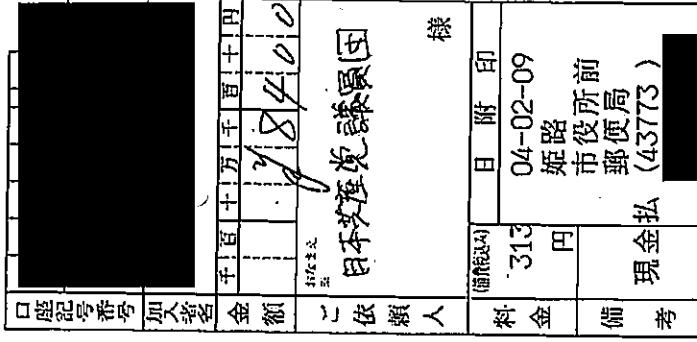 口座記号番号
加入者名
金額
千 百 十 万 千 百 十 円
8400
ご依頼人
おなまえ
※
日本共産党議員団
様
料金
(消費税込み)
313
円
備考
現金払
日附印
04-02-09
姫路
市役所前
郵便局
(43773)